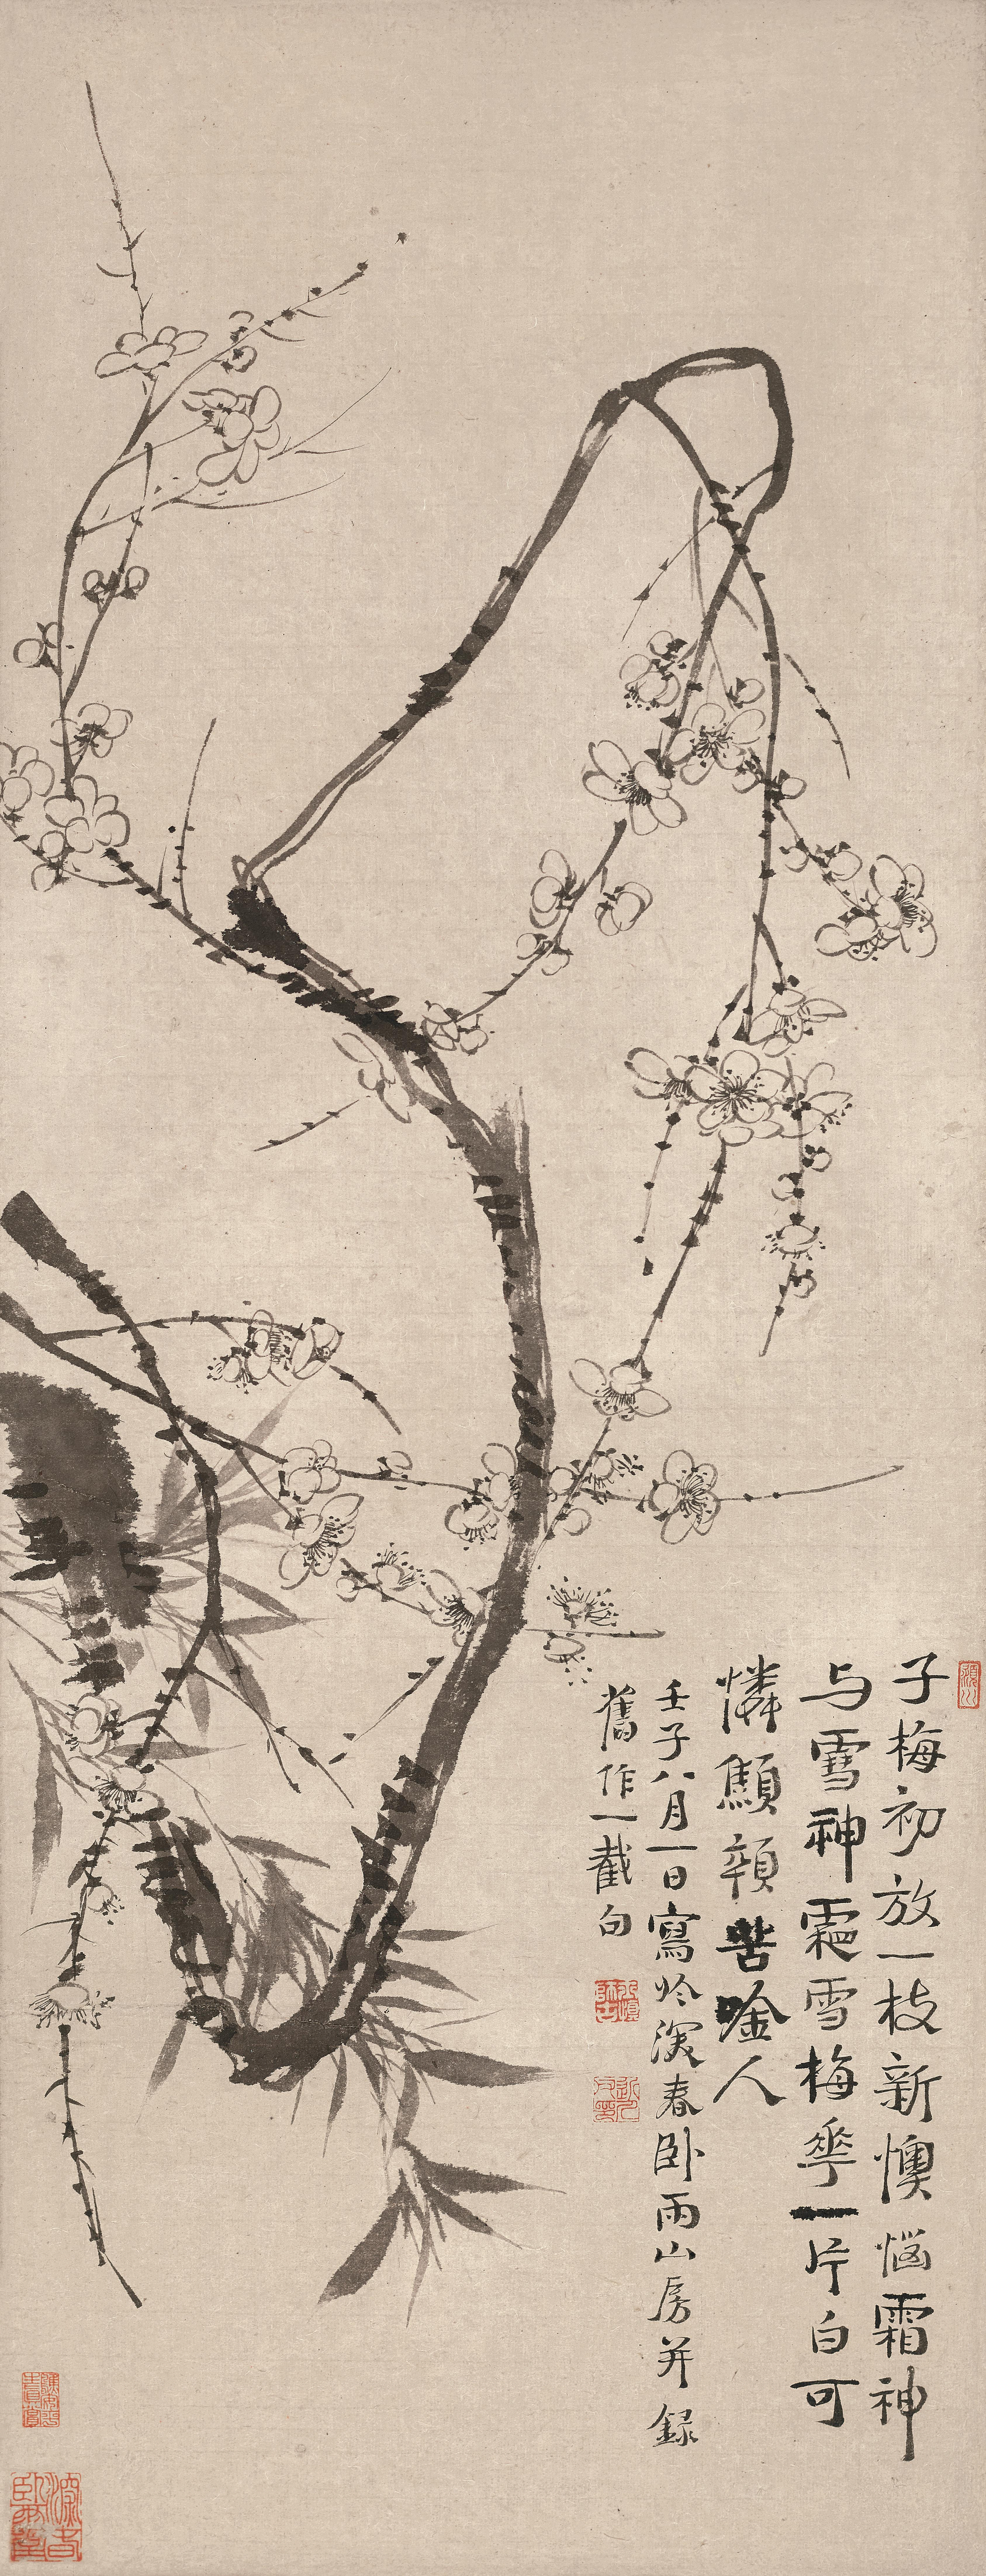 子梅初放一枝新懊惱霜神
与雪神雪梅華一片白可
憐顦顇苦唫人
壬子八月一日寫於深春臥雨山房并録
舊作一截句